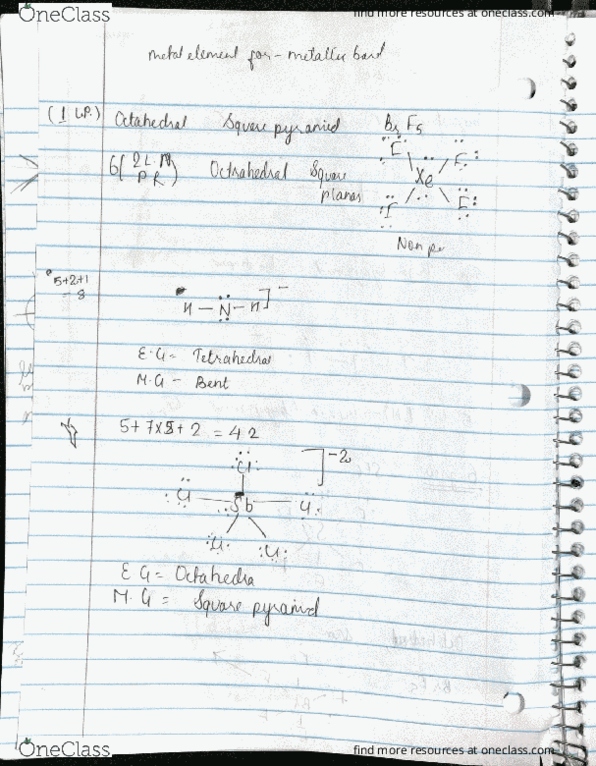 OneClass
find more resources at oneclass.com
metal element for - metallic bond
(1 LP.) Octahedral Square pyramid Br F5
6 ( 2 L. Octahedral Square
PR) planar
:F F:
Xe
F:
Non po
5+2+1
= 8
H — N — H ] -
E.G = Tetrahedral
M.G - Bent
5 + 7x5 + 2 = 42
:Cl: ] -2
Cl — Sb — Cl:
:Cl: :Cl:
E G = Octahedra
M. G = Square pyramid
OneClass
find more resources at oneclass.com